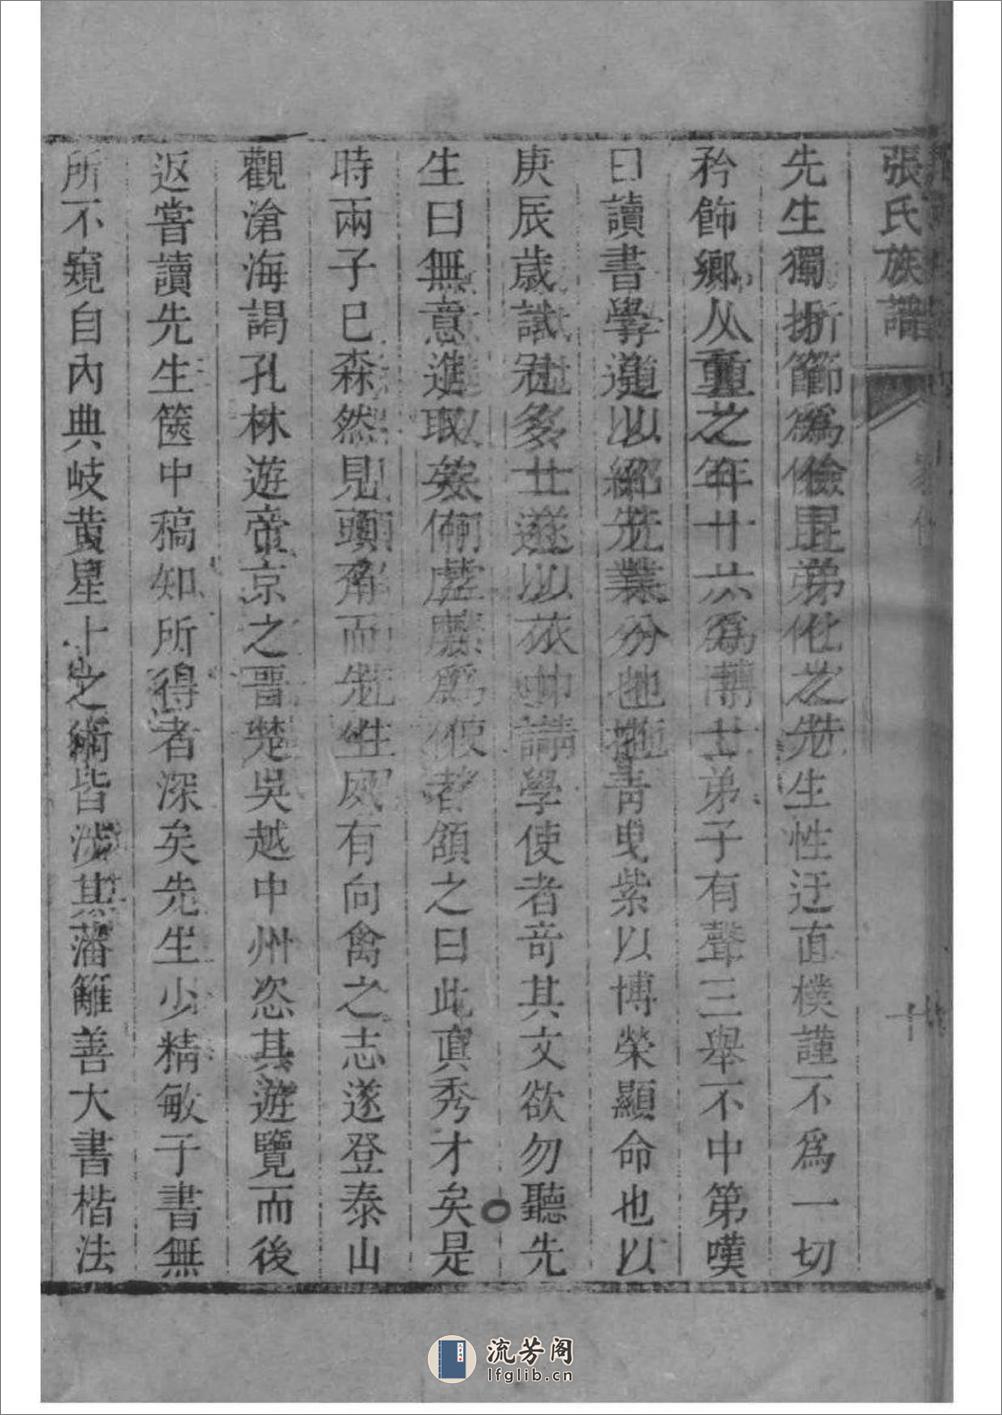 張氏族譜
十
先生獨折節為儉昆弟化之先生性迂直樸謹不為一切
矜飾鄉人重之年廿六為博士弟子有聲三舉不中第嘆
曰讀書學道以紹先業分也拖青曳紫以博榮顯命也以
庚辰歲試冠多士遂以衣巾請學使者奇其文欲勿聽先
生曰無意進取矣
者頷之曰此真秀才矣是
時兩子已森然見頭角而先生夙有向禽之志遂登泰山
觀滄海謁孔林遊帝京之晉楚吳越中州恣其遊覽而後
返嘗讀先生篋中稿知所得者深矣先生少精敏于書無
所不窺自內典岐黃星卜之術皆涉其藩籬善大書楷法
流芳阁
lfglib.cn